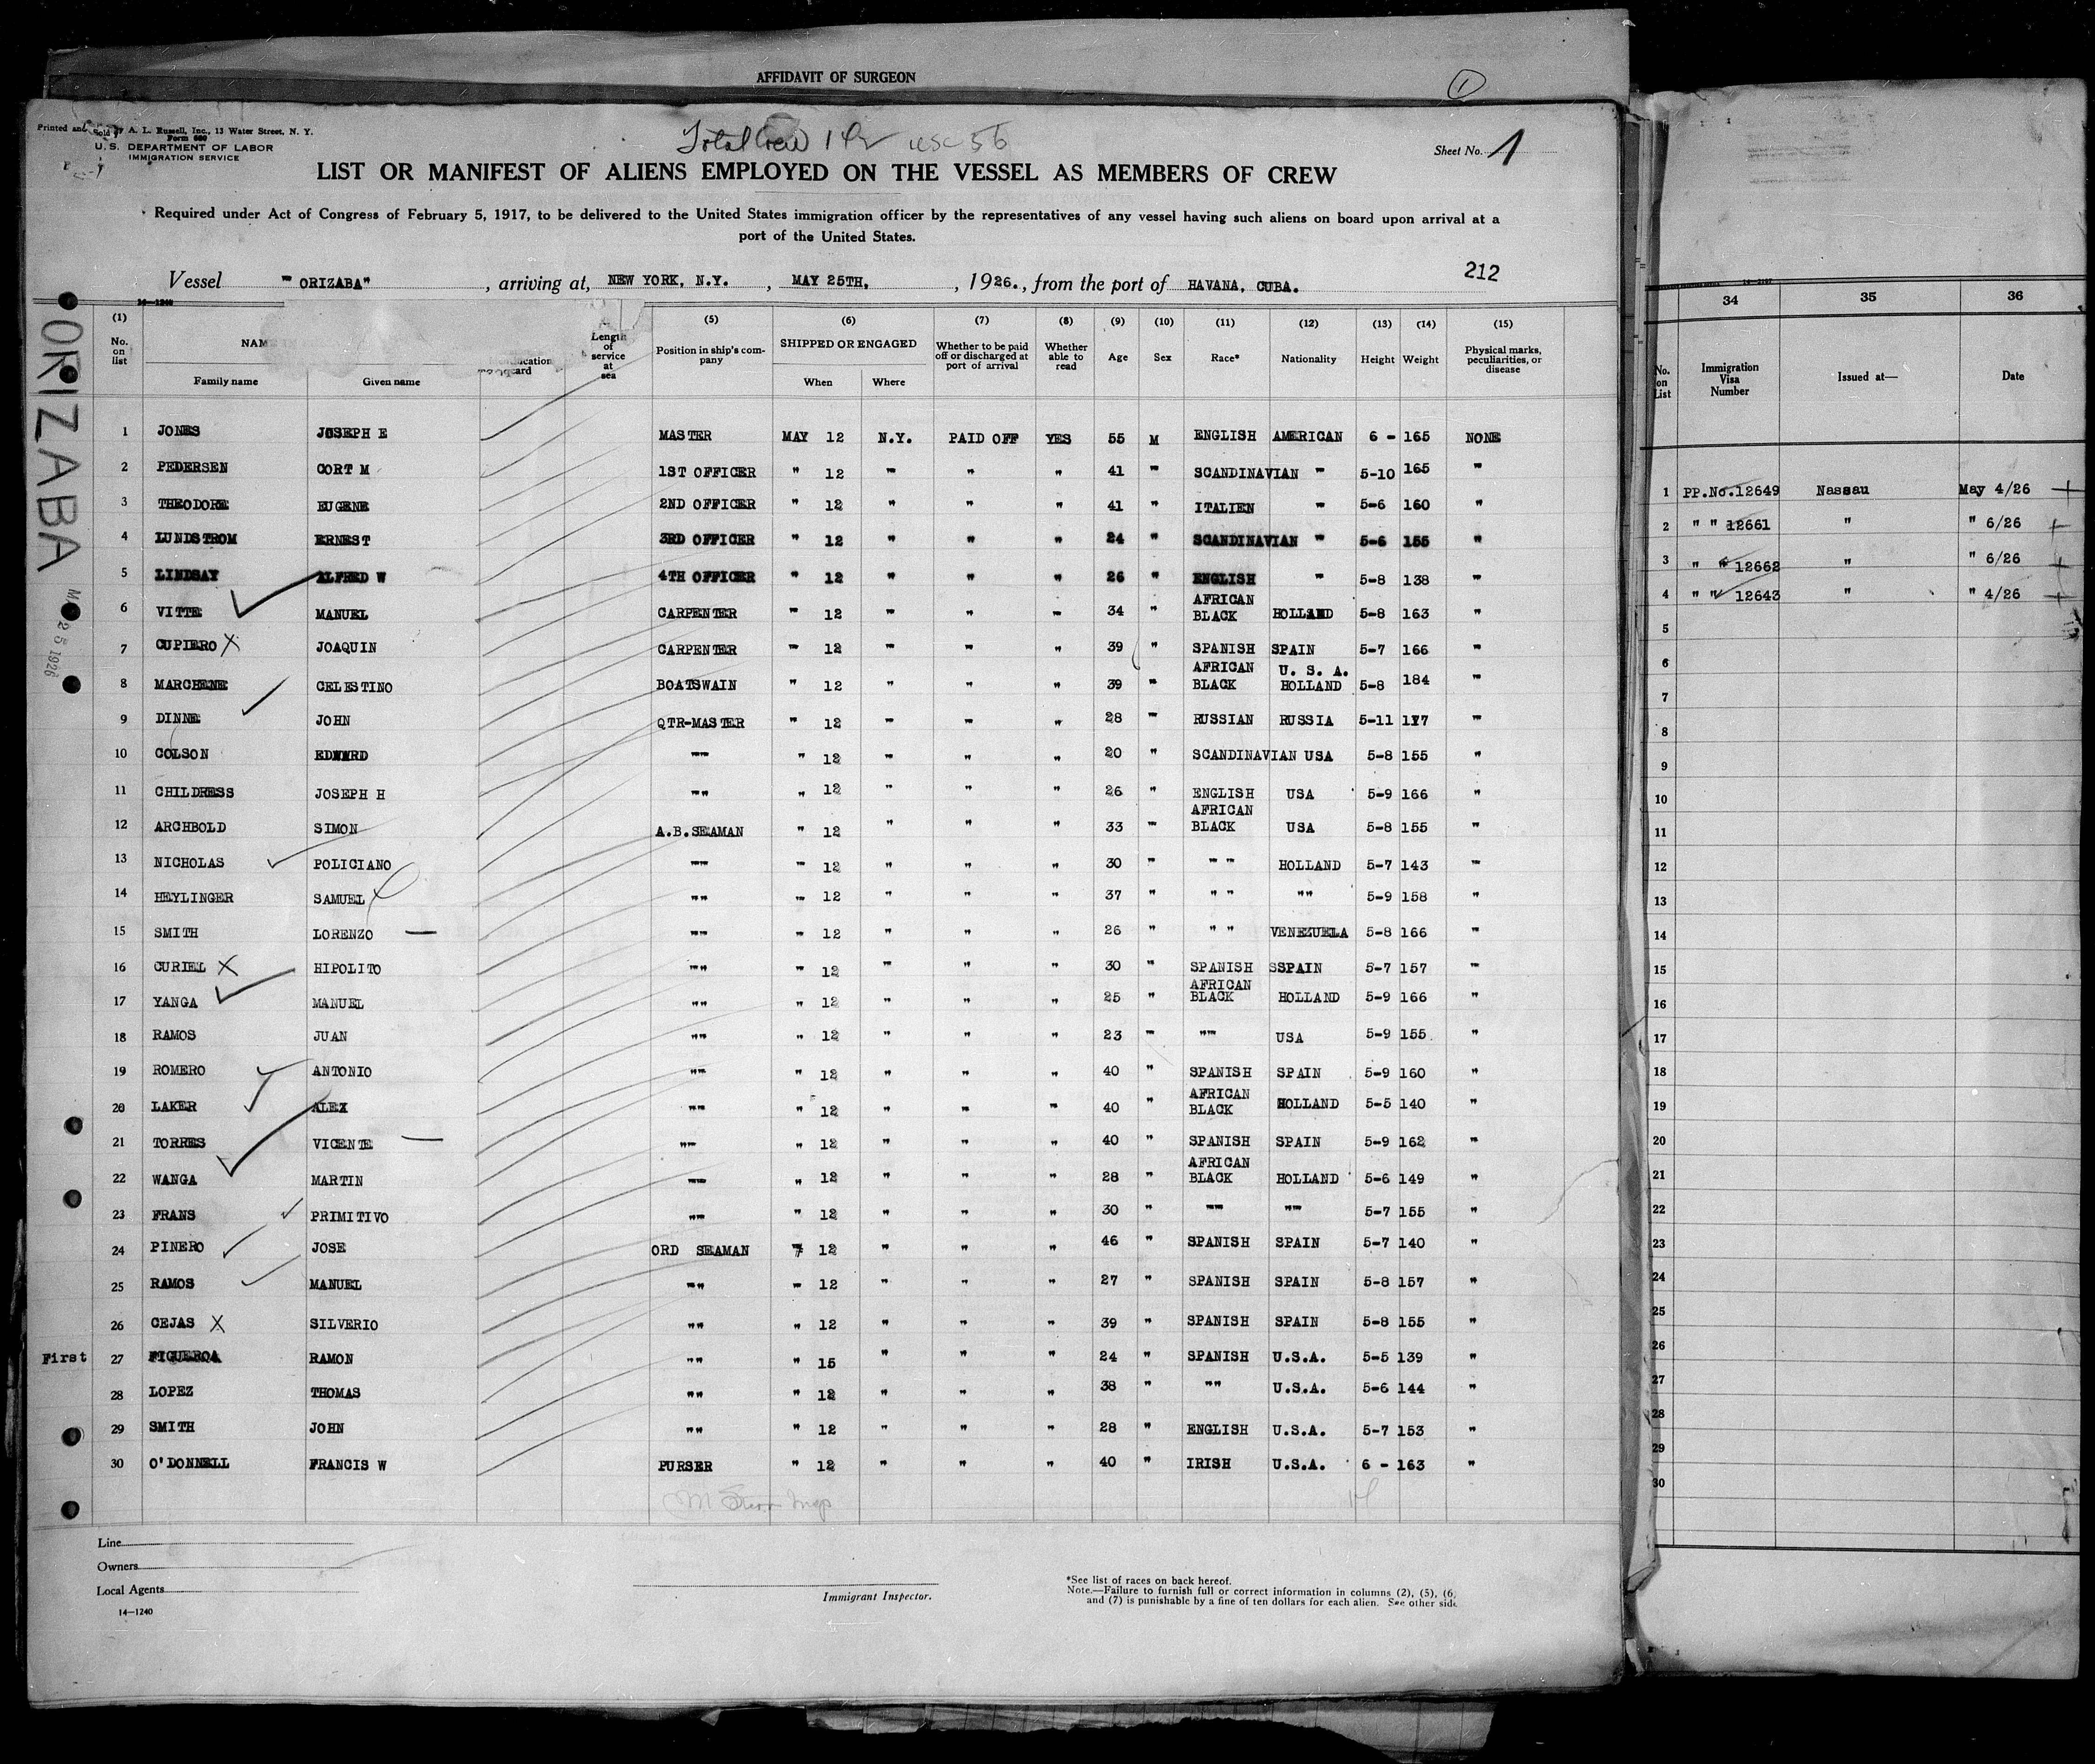 AFFIDAVIT OF SURGEON
1
Printed and Sold by A. L. Russell, Inc., 13 Water Street, N. Y.
Form 680
U. S. DEPARTMENT OF LABOR
IMMIGRATION SERVICE
Total Crew usc 56
Sheet No. 1
LIST OR MANIFEST OF ALIENS EMPLOYED ON THE VESSEL AS MEMBERS OF CREW
Required under Act of Congress of February 5, 1917, to be delivered to the United States immigration officer by the representatives of any vessel having such aliens on board upon arrival at a
port of the United States.
212
Vessel "ORIZABA", arriving at, NEW YORK, N.Y., MAY 25TH, , 1926., from the port of HAVANA, CUBA.
14—1240
ORIZABA
25 1926
(1) (5) (6) (7) (8) (9) (10) (11) (12) (13) (14) (15)
No. on list Family name Given name Length of service at sea Position in ship's company SHIPPED OR ENGAGED When Where Whether to be paid off or discharged at port of arrival Whether able to read Age Sex Race* Nationality Height Weight Physical marks, peculiarities, or disease
1 JONES JOSEPH E MASTER MAY 12 N.Y. PAID OFF YES 55 M ENGLISH AMERICAN 6 - 165 NONE
2 PEDERSEN CORT M 1ST OFFICER " 12 " " " 41 " SCANDINAVIAN " 5-10 165 "
3 THEODORE EUGENE 2ND OFFICER " 12 " " " 41 " ITALIEN " 5-6 160 "
4 LUNDSTROM ERNEST 3RD OFFICER " 12 " " " 24 " SCANDINAVIAN " 5-6 155 "
5 LINDSAY ALFRED W 4TH OFFICER " 12 " " " 26 " ENGLISH " 5-8 138 "
6 VITTE MANUEL CARPENTER " 12 " " " 34 " AFRICAN BLACK HOLLAND 5-8 163 "
7 CUPIERO X JOAQUIN CARPENTER " 12 " " " 39 " SPANISH SPAIN 5-7 166 "
8 MARCHENE CELESTINO BOATSWAIN " 12 " " " 39 " AFRICAN BLACK U. S. A. HOLLAND 5-8 184 "
9 DINNE JOHN QTR-MASTER " 12 " " " 28 " RUSSIAN RUSSIA 5-11 177 "
10 COLSON EDWARD "" " 12 " " " 20 " SCANDINAVIAN USA 5-8 155 "
11 CHILDRESS JOSEPH H "" " 12 " " " 26 " ENGLISH USA 5-9 166 "
12 ARCHBOLD SIMON A.B.SEAMAN " 12 " " " 33 " AFRICAN BLACK USA 5-8 155 "
13 NICHOLAS POLICIANO "" " 12 " " " 30 " " " HOLLAND 5-7 143 "
14 HEYLINGER SAMUEL "" " 12 " " " 37 " " " "" 5-9 158 "
15 SMITH LORENZO — "" " 12 " " " 26 " " " VENEZUELA 5-8 166 "
16 CURIEL X HIPOLITO "" " 12 " " " 30 " SPANISH SSPAIN 5-7 157 "
17 YANGA MANUEL "" " 12 " " " 25 " AFRICAN BLACK HOLLAND 5-9 166 "
18 RAMOS JUAN "" " 12 " " " 23 " "" USA 5-9 155 "
19 ROMERO ANTONIO "" " 12 " " " 40 " SPANISH SPAIN 5-9 160 "
20 LAKER ALEX "" " 12 " " " 40 " AFRICAN BLACK HOLLAND 5-5 140 "
21 TORRES VICENTE — "" " 12 " " " 40 " SPANISH SPAIN 5-9 162 "
22 WANGA MARTIN "" " 12 " " " 28 " AFRICAN BLACK HOLLAND 5-6 149 "
23 FRANS PRIMITIVO "" " 12 " " " 30 " "" "" 5-7 155 "
24 PINERO JOSE ORD SEAMAN " 12 " " " 46 " SPANISH SPAIN 5-7 140 "
25 RAMOS MANUEL "" " 12 " " " 27 " SPANISH SPAIN 5-8 157 "
26 CEJAS X SILVERIO "" " 12 " " " 39 " SPANISH SPAIN 5-8 155 "
First 27 FIGUEROA RAMON "" " 15 " " " 24 " SPANISH U.S.A. 5-5 139 "
28 LOPEZ THOMAS "" " 12 " " " 38 " "" U.S.A. 5-6 144 "
29 SMITH JOHN "" " 12 " " " 28 " ENGLISH U.S.A. 5-7 153 "
30 O'DONNELL FRANCIS W PURSER " 12 " " " 40 " IRISH U.S.A. 6 - 163 "
Line
Owners
Local Agents
14—1240
Immigrant Inspector.
*See list of races on back hereof.
Note.—Failure to furnish full or correct information in columns (2), (5), (6,
and (7) is punishable by a fine of ten dollars for each alien. See other side
34 35 36
No. on List Immigration Visa Number Issued at— Date
1 PP.No.12649 Nassau May 4/26
2 " " 12661 " " 6/26
3 " " 12662 " " 6/26
4 " " 12643 " " 4/26
5
6
7
8
9
10
11
12
13
14
15
16
17
18
19
20
21
22
23
24
25
26
27
28
29
30